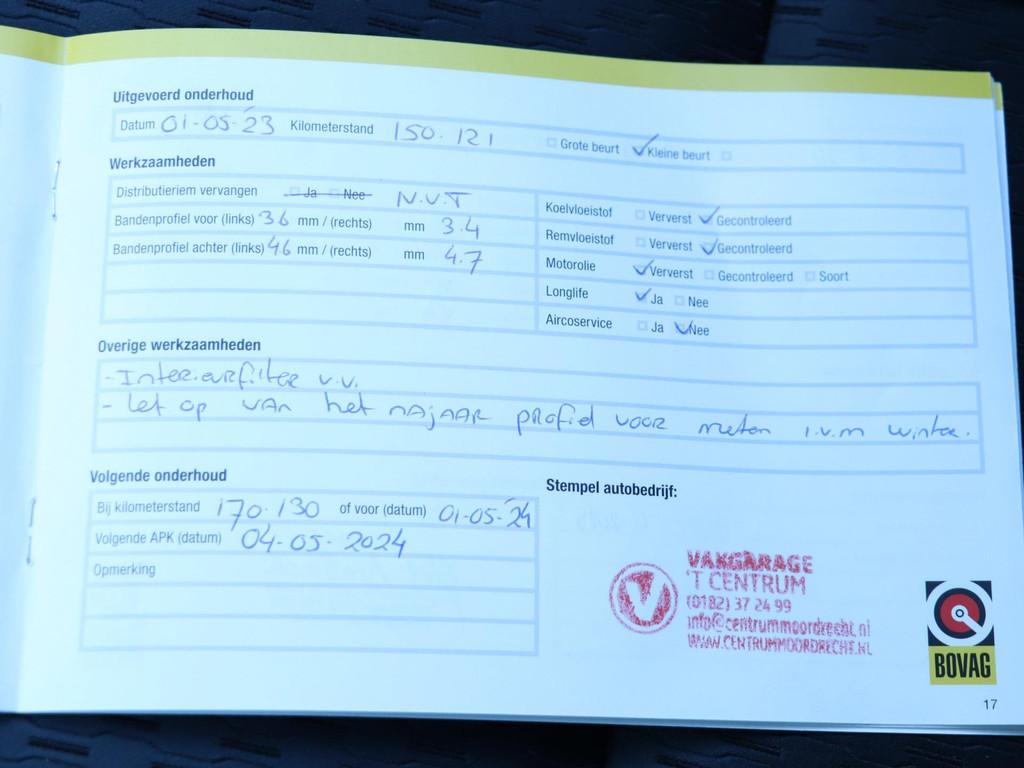 Uitgevoerd onderhoud
Datum 01-05-23 Kilometerstand 150.121 Grote beurt Kleine beurt
Werkzaamheden
Distributieriem vervangen Ja Nee N.V.T
Bandenprofiel voor (links) 3.6 mm / (rechts) mm 3.4
Bandenprofiel achter (links) 4.6 mm / (rechts) mm 4.7
Koelvloeistof Ververst Gecontroleerd
Remvloeistof Ververst Gecontroleerd
Motorolie Ververst Gecontroleerd Soort
Longlife Ja Nee
Aircoservice Ja Nee
Overige werkzaamheden
- Interieurfilter v.v.
- let op van het najaar profiel voor meten i.v.m winter.
Volgende onderhoud
Bij kilometerstand 170.130 of voor (datum) 01-05-'24
Volgende APK (datum) 04-05-2024
Opmerking
Stempel autobedrijf:
VAKGARAGE
'T CENTRUM
(0182) 37 24 99
info@centrummoordrecht.nl
WWW.CENTRUMMOORDRECHT.NL
BOVAG
17